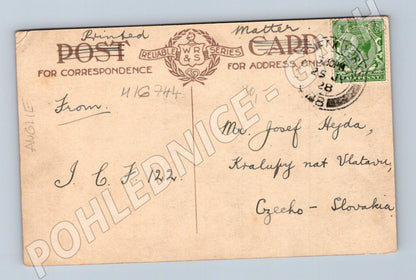 Printed Matter.
POST CARD
RELIABLE WR&S SERIES
FOR CORRESPONDENCE
FOR ADDRESS ONLY
25 JU
28
HALFPENNY
M16744.
ANGLIE
From.
To
I.C.F. 122
Mr. Josef Hejda,
Kralupy nat Vlatavu,
Czecho-Slovakia
POHLEDNICE-